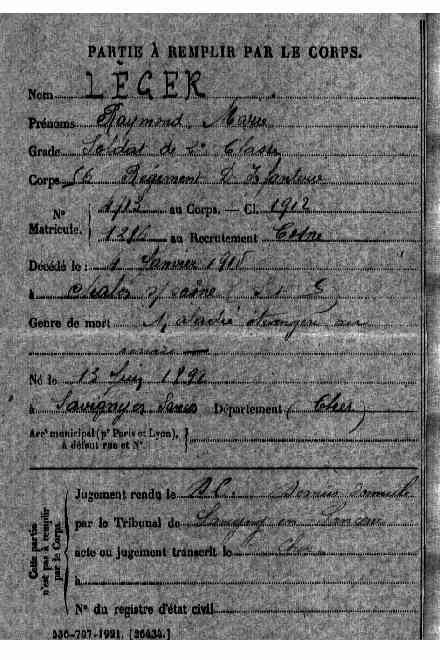 PARTIE À REMPLIR PAR LE CORPS.
Nom LÉGER
Prénoms Raymond Marie
Grade Soldat de 2e Classe
Corps 56 Regiment D'Infanterie
N° Matricule. au Corps. — Cl. 1912
au Recrutement Cosne
Décédé le : 1 Janvier 1918
à Chalon s/ Saône S et L
Genre de mort Maladie étrangère au
service
Né le 13 1892
à Savigny en Sancerre Département (Cher)
Arrt municipal (pr Paris et Lyon), à défaut rue et N°.
Cette partie n'est pas à remplir par le Corps.
Jugement rendu le Dernier domicile
par le Tribunal de Savigny en Sancerre
acte ou jugement transcrit le Cher
à
N° du registre d'état civil
536-707-1921. [26434.]